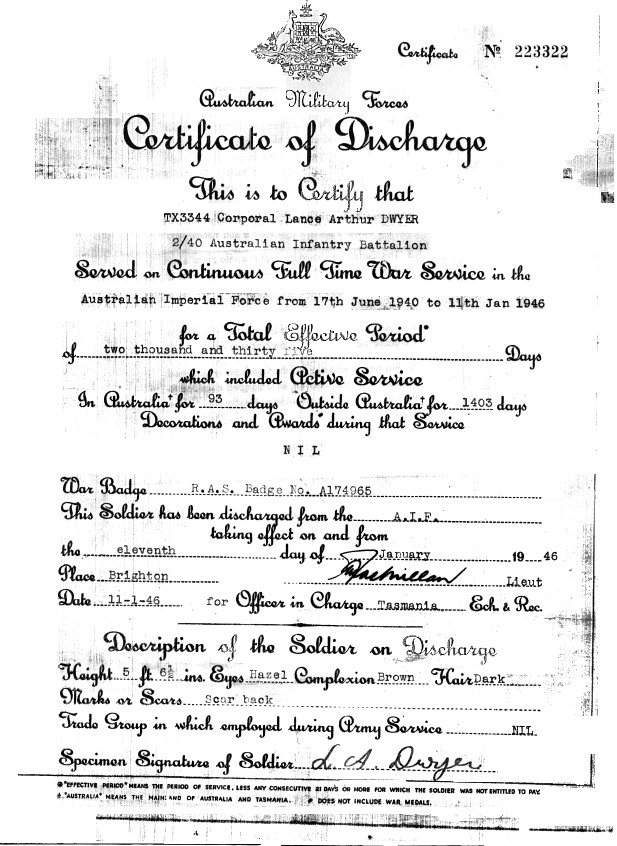 Certificate No 223322
Australian Military Forces
Certificate of Discharge
This is to Certify that
TX3344 Corporal Lance Arthur DWYER
2/40 Australian Infantry Battalion
Served on Continuous Full Time War Service in the
Australian Imperial Force from 17th June 1940 to 11th Jan 1946
for a Total Effective Period*
of two thousand and thirty five Days
which included Active Service
In Australia† for 93 days Outside Australia† for 1403 days
Decorations and Awards during that Service
NIL
War Badge R.A.S. Badge No. A174965
This Soldier has been discharged from the A.I.F.
taking effect on and from
the eleventh day of January 19 46
Place Brighton Lieut
Date 11-1-46 for Officer in Charge Tasmania Ech. & Rec.
Description of the Soldier on Discharge
Height 5 ft. 6½ ins. Eyes Hazel Complexion Brown Hair Dark
Marks or Scars Scar back
Trade Group in which employed during Army Service NIL
Specimen Signature of Soldier L A. Dwyer
"EFFECTIVE PERIOD" MEANS THE PERIOD OF SERVICE, LESS ANY CONSECUTIVE 21 DAYS OR MORE FOR WHICH THE SOLDIER WAS NOT ENTITLED TO PAY.
"AUSTRALIA" MEANS THE MAINLAND OF AUSTRALIA AND TASMANIA. DOES NOT INCLUDE WAR MEDALS.